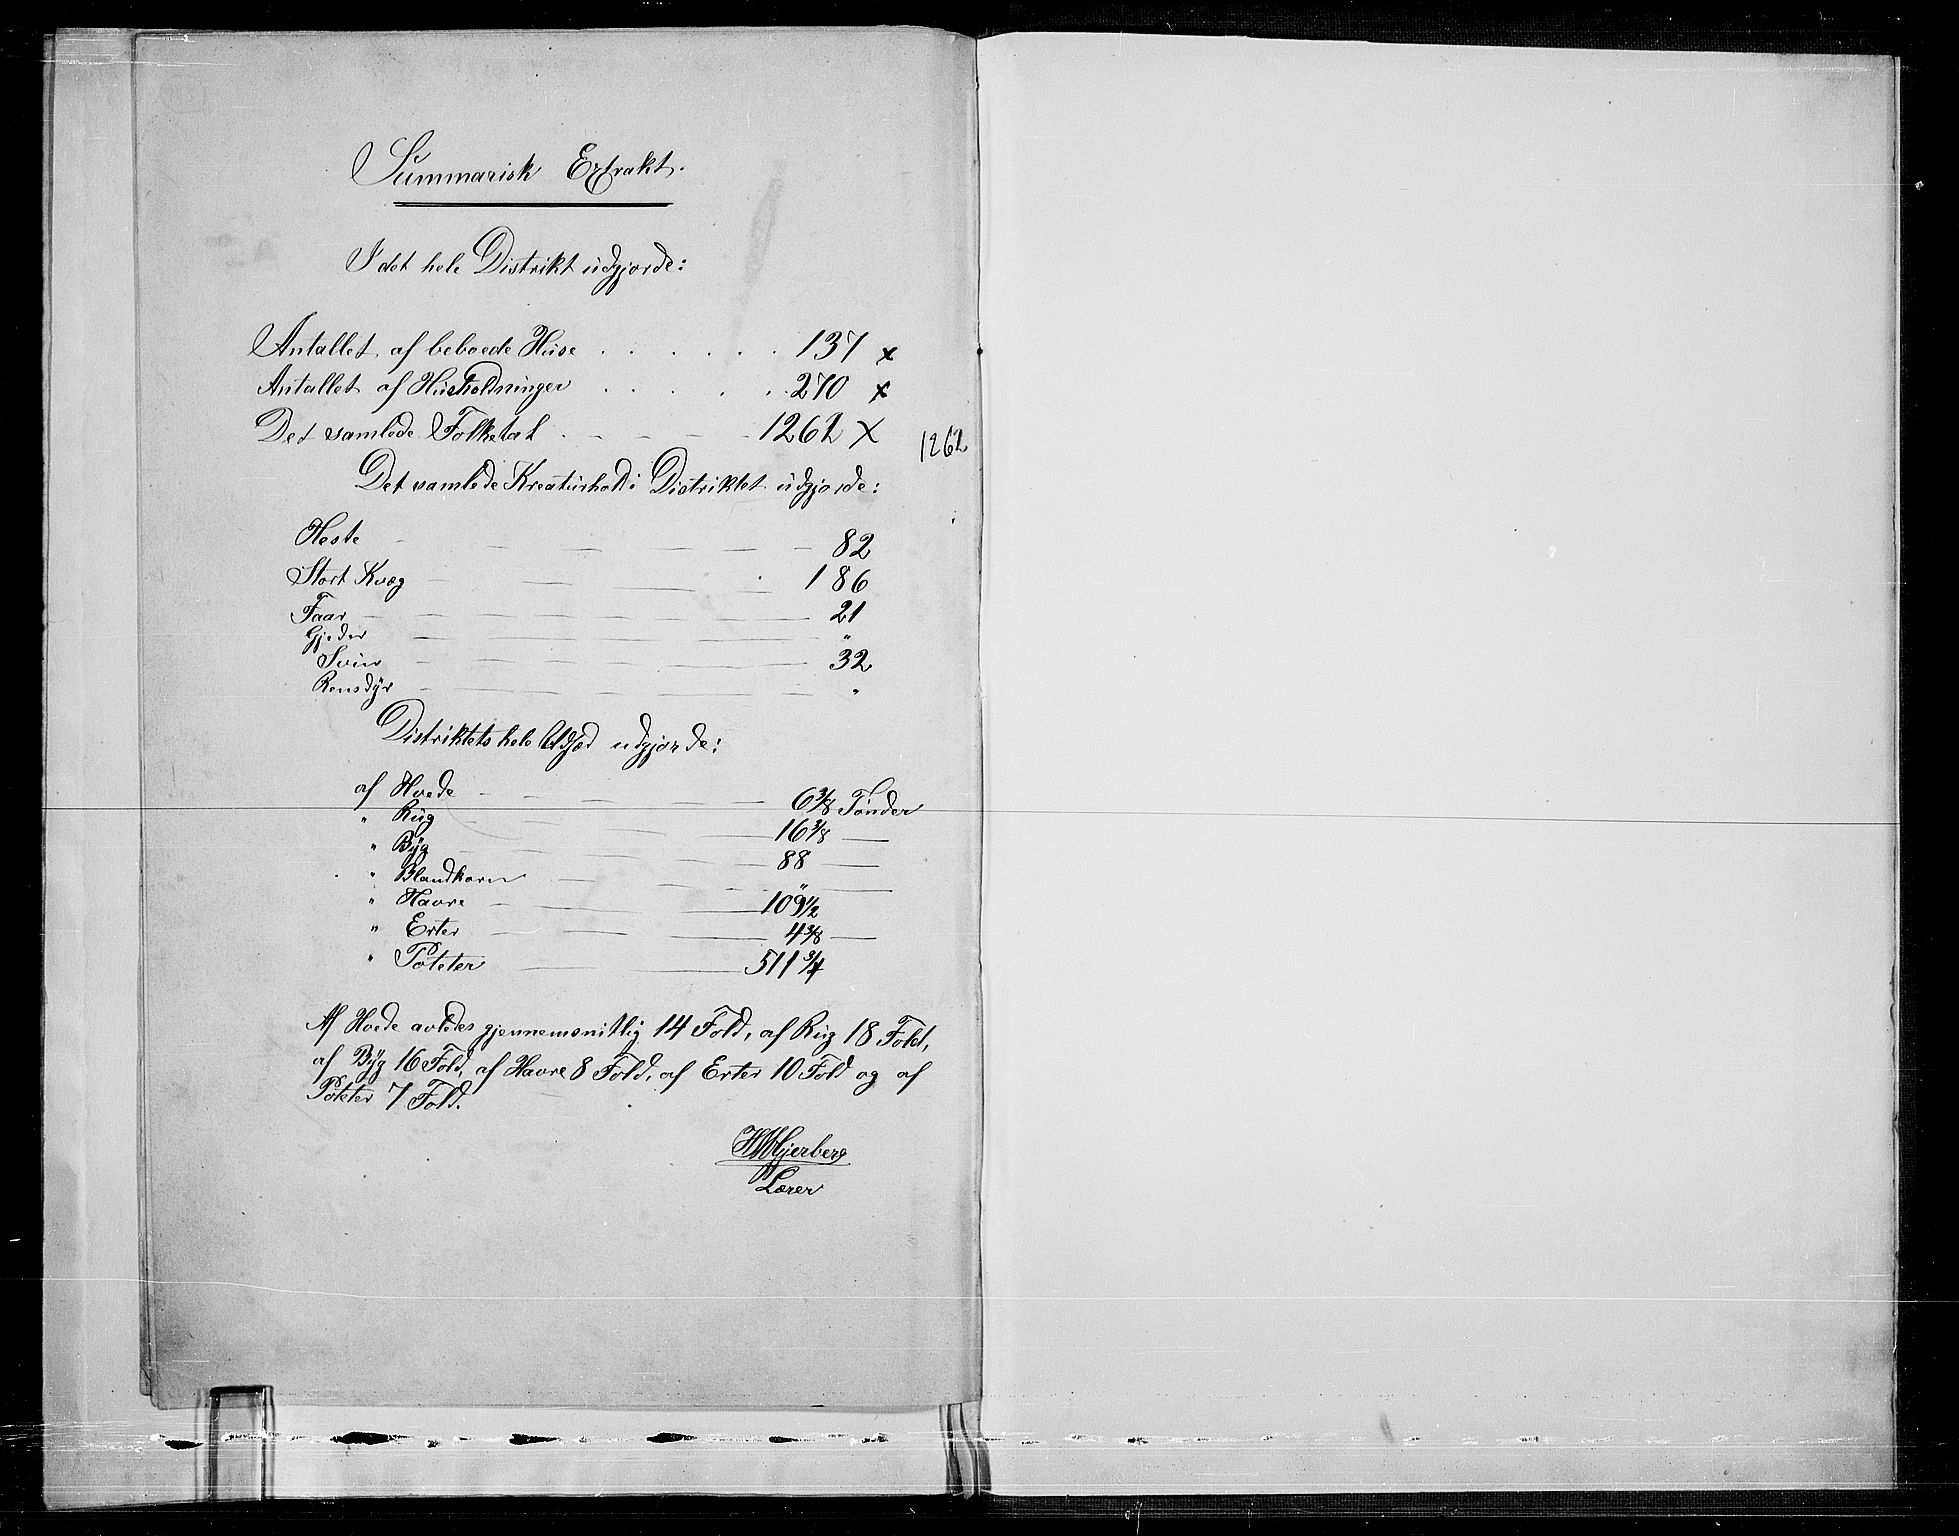 Summarisk Extrakt.
I det hele Distrikt udgjorde:
Antallet af beboede Huse . . . . . . 137 x
Antallet af Husholdninger . . . . . 270 x
Det samlede Folketal . - - - - 1262 X 1262
Det samlede Kreaturhold i Distriktet udgjorde:
Heste - - - - - - - 82
Stort Kvæg - - - - - - 186
Faar - - - - - - - 21
Gjeder - - - - - - - "
Svin - - - - - - - 32
Rensdyr - - - - - - - "
Distriktets hele Udsæd udgjorde:
af Hvede - - - - - - 6 3/8 Tønder
" Rug - - - - - - 16 3/8 —
" Byg - - - - - - 88 —
" Blandkorn - - - - - " —
" Havre - - - - - 109 1/2
" Erter - - - - - 4 3/8 —
" Poteter - - - - - 511 3/4
Af Hvede avledes gjennemsnitlig 14 Fold, af Rug 18 Fold,
af Byg 16 Fold, af Havre 8 Fold, af Erter 10 Fold og af
Poteter 7 Fold.
Hjerberg
Lærer